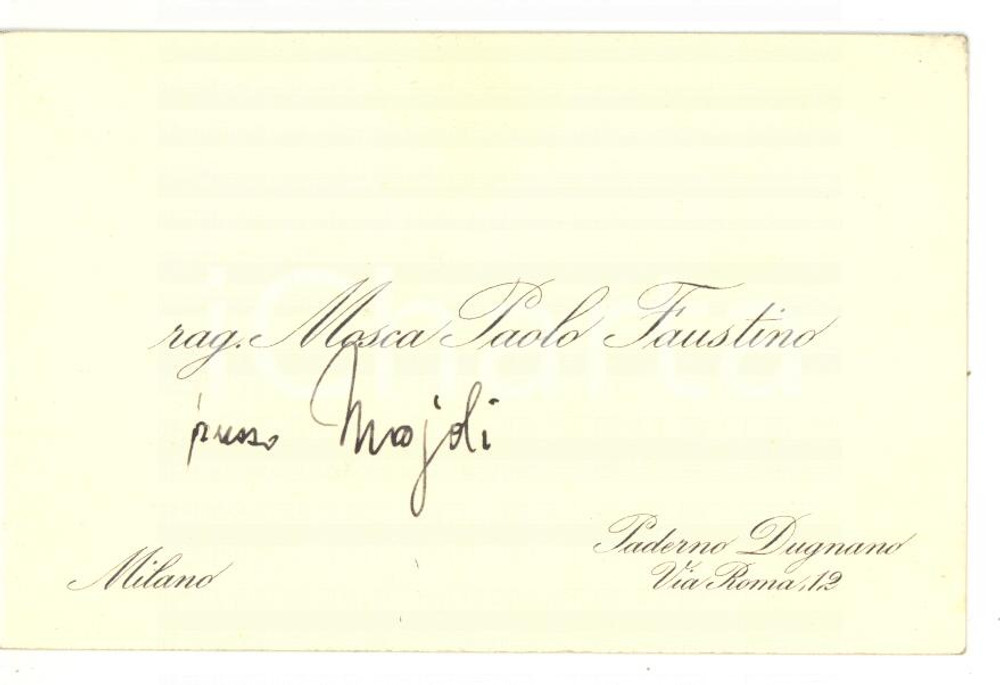 rag. Mosca Paolo Faustino
presso Majoli
Milano
Paderno Dugnano
Via Roma, 12